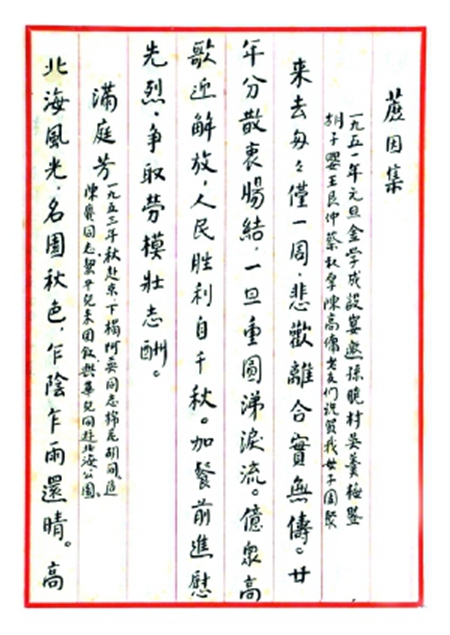 蔗因集
一九五一年元旦金学成設宴邀孫曉村吴羹梅暨
胡子嬰王艮仲蔡叔厚陳高傭老友們祝賀我母子团聚
来去匆々僅一周，悲歡離合實無儔。廿
年分散衷腸結，一旦重圓涕淚流。億衆高
歌迎解放，人民胜利自千秋。加餐前進慰
先烈，争取劳模壮志酬。
滿庭芳
一九五三年秋赴京，下榻阿英同志棉花胡同，適
陳賡同志絜平兒来团叙，與華兒同遊北海公園。
北海風光，名園秋色，乍陰乍雨還晴。高